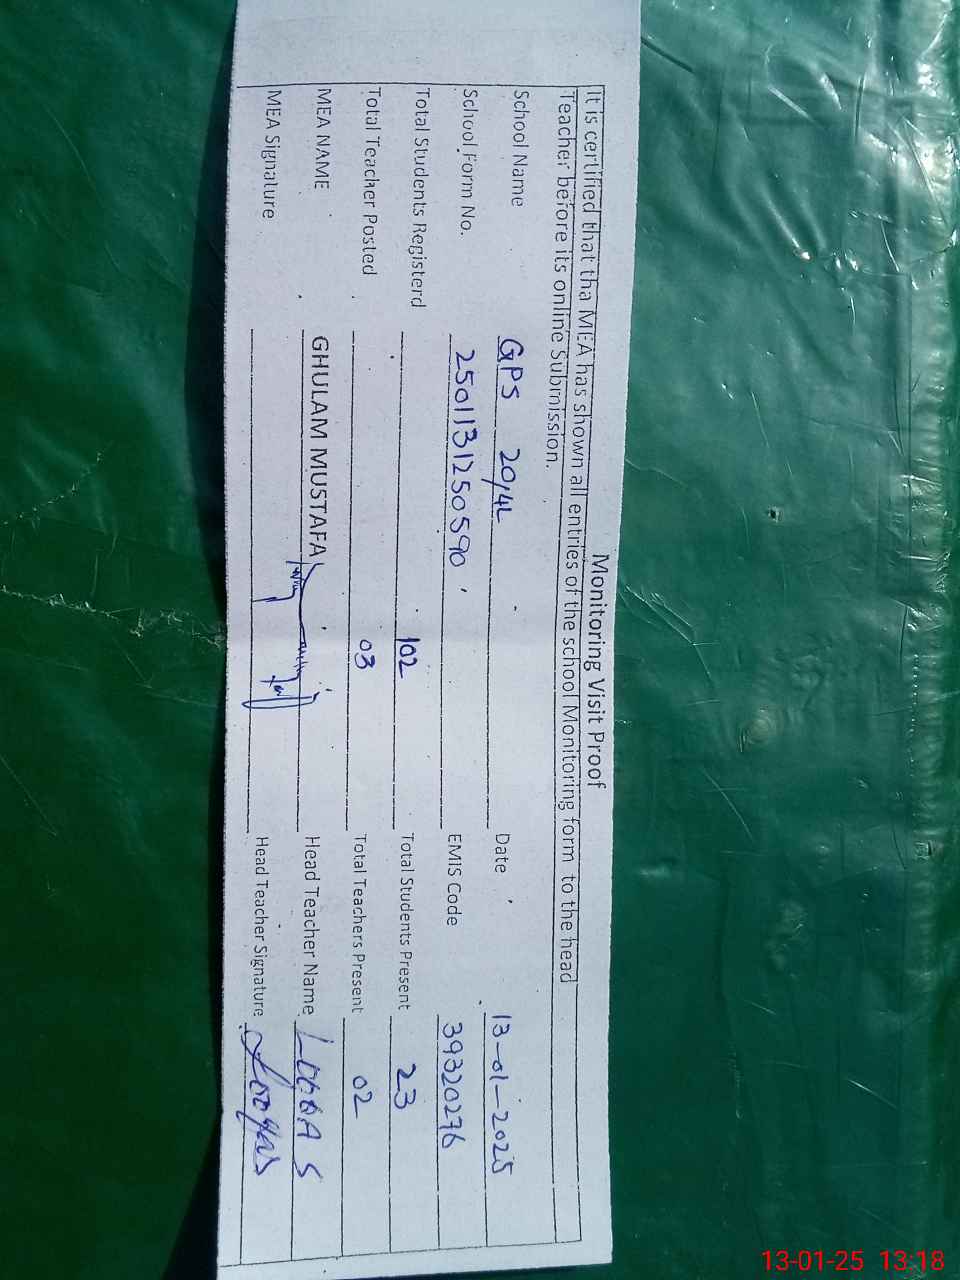 Monitoring Visit Proof
It is certified that tha MEA has shown all entries of the school Monitoring form to the head
Teacher before its online Submission.
School Name GPS 20/4L Date 13-01-2025
School Form No. 2501131250590 EMIS Code 39320276
Total Students Registerd 102 Total Students Present 23
Total Teacher Posted 03 Total Teachers Present 02
MEA NAME GHULAM MUSTAFA Head Teacher Name
MEA Signature Head Teacher Signature
13-01-25 13:18